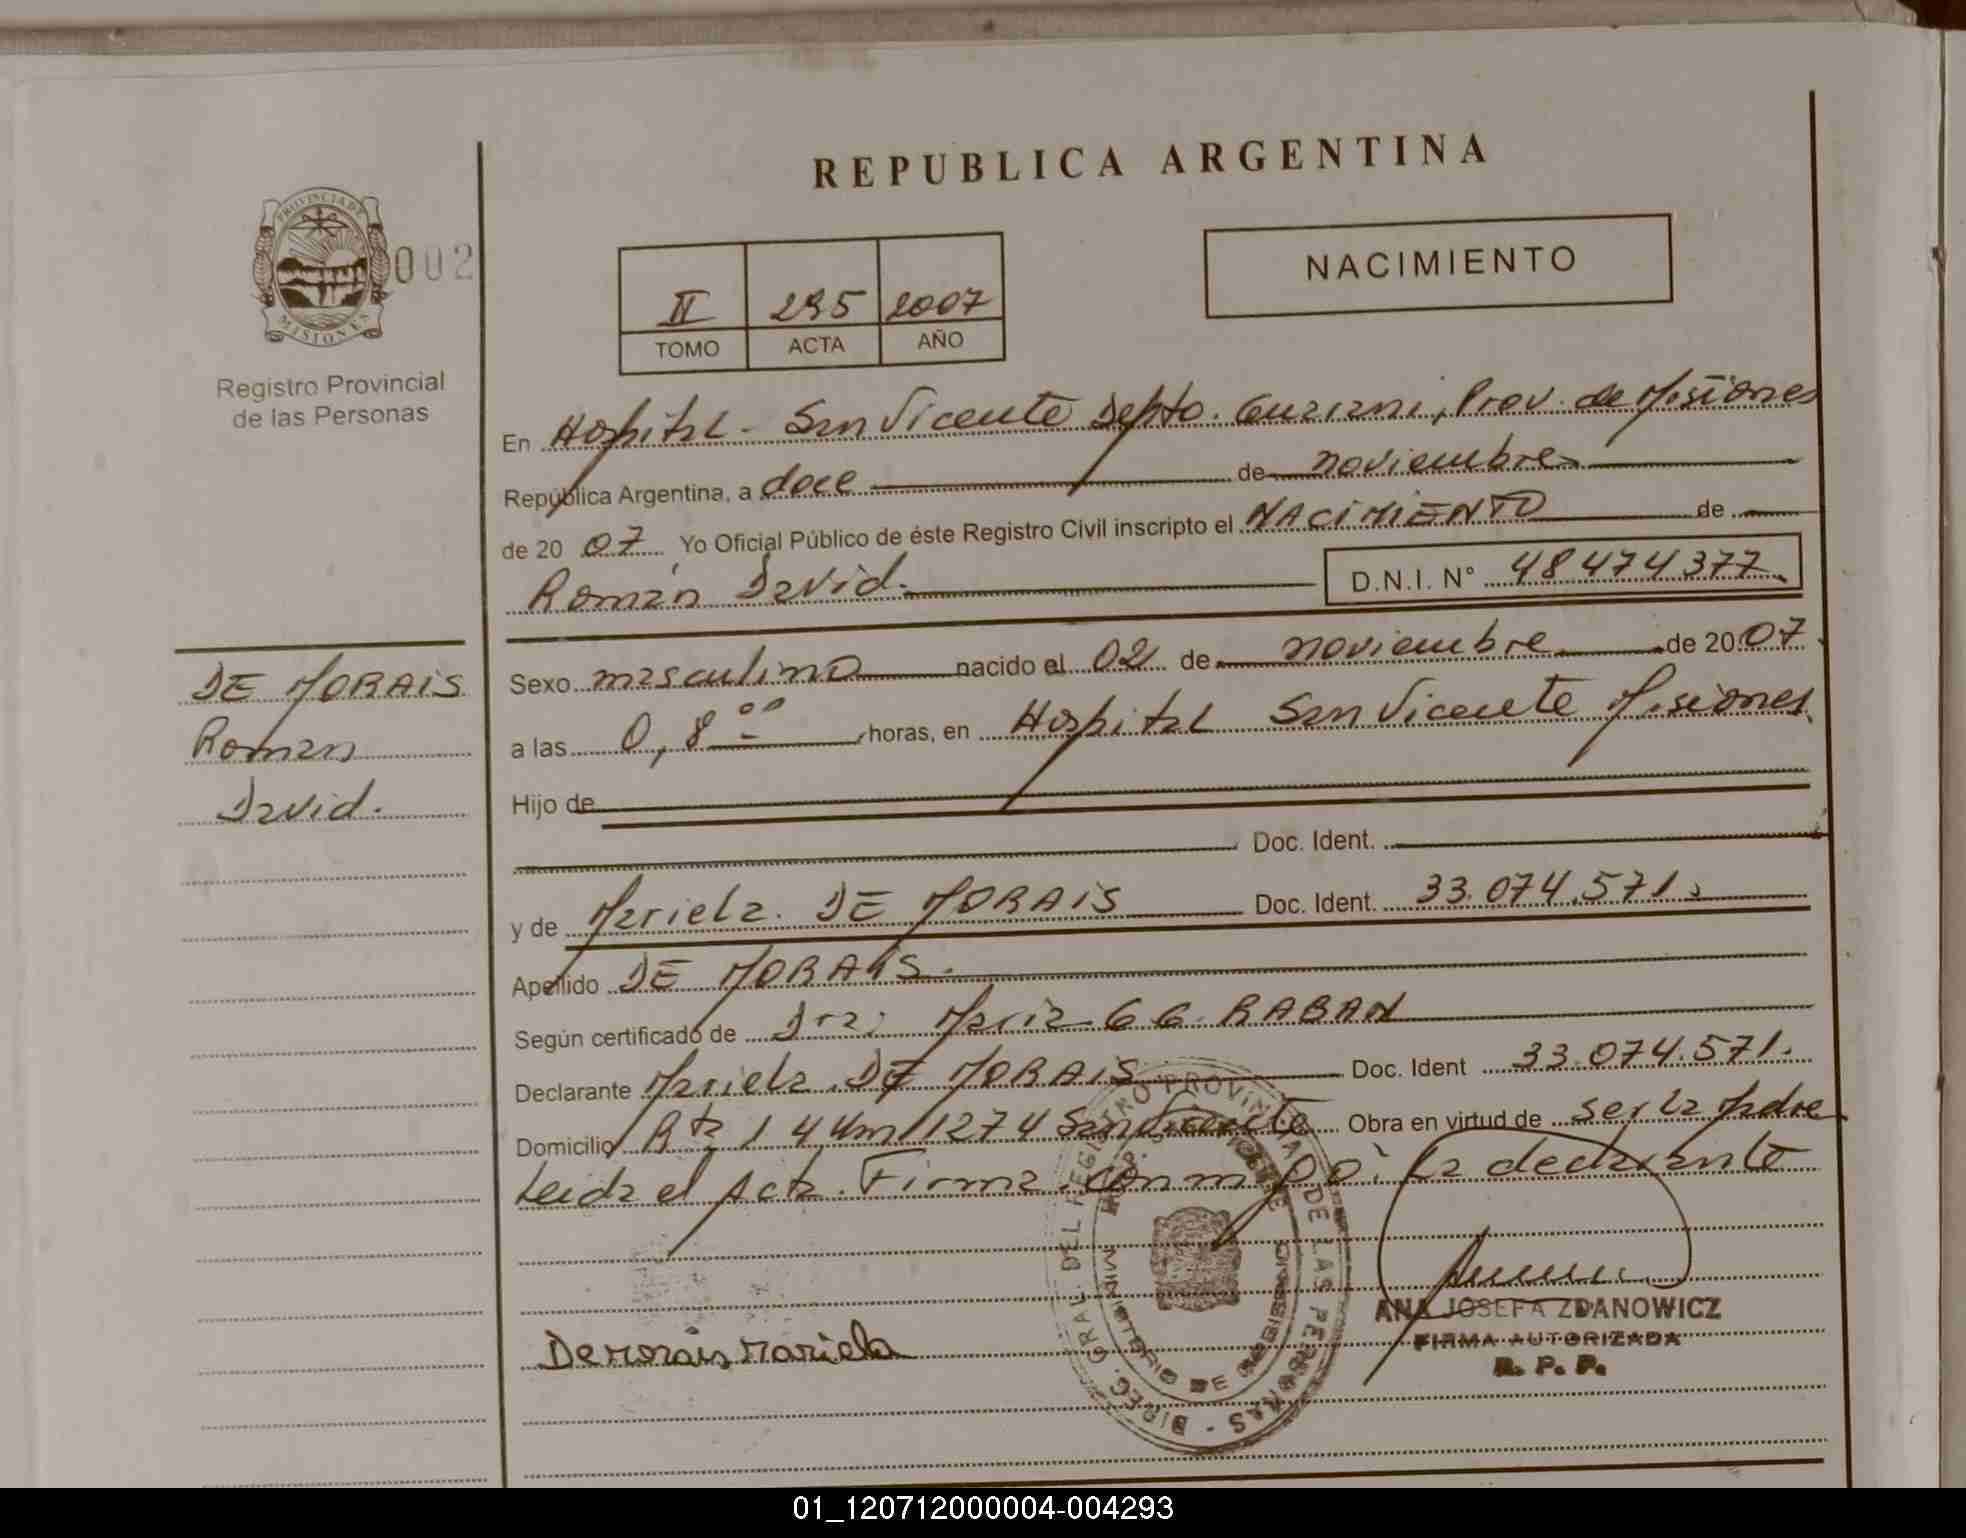 REPUBLICA ARGENTINA
PROVINCIA DE
MISIONES
002
Registro Provincial
de las Personas
II 295 2007
TOMO ACTA AÑO
NACIMIENTO
En Hospital - San Vicente Depto. Guarani, Prov. de Misiones
República Argentina, a doce de noviembre
de 20 07 Yo Oficial Público de éste Registro Civil inscripto el NACIMIENTO de
Román David. D.N.I. N° 48474377
DE MORAIS
Roman
David.
Sexo masculino nacido el 02 de noviembre de 20 07
a las 0,8 00 horas, en Hospital San Vicente Misiones
Hijo de
Doc. Ident.
y de Mariela DE MORAIS Doc. Ident. 33.074.571
Apellido DE MORAIS.
Según certificado de Dra: Maria G G. RABAN
Declarante Mariela DE MORAIS Doc. Ident 33.074.571.
Domicilio Rta 14 km 1274 San Vicente Obra en virtud de ser la Madre
Leida el Acta. Firma conmigo: la declarante
DIREC. GRAL. DEL REGISTRO PROVINCIAL DE LAS PERSONAS
De morais mariela
ANA JOSEFA ZDANOWICZ
FIRMA AUTORIZADA
R. P. P.
01_120712000004-004293